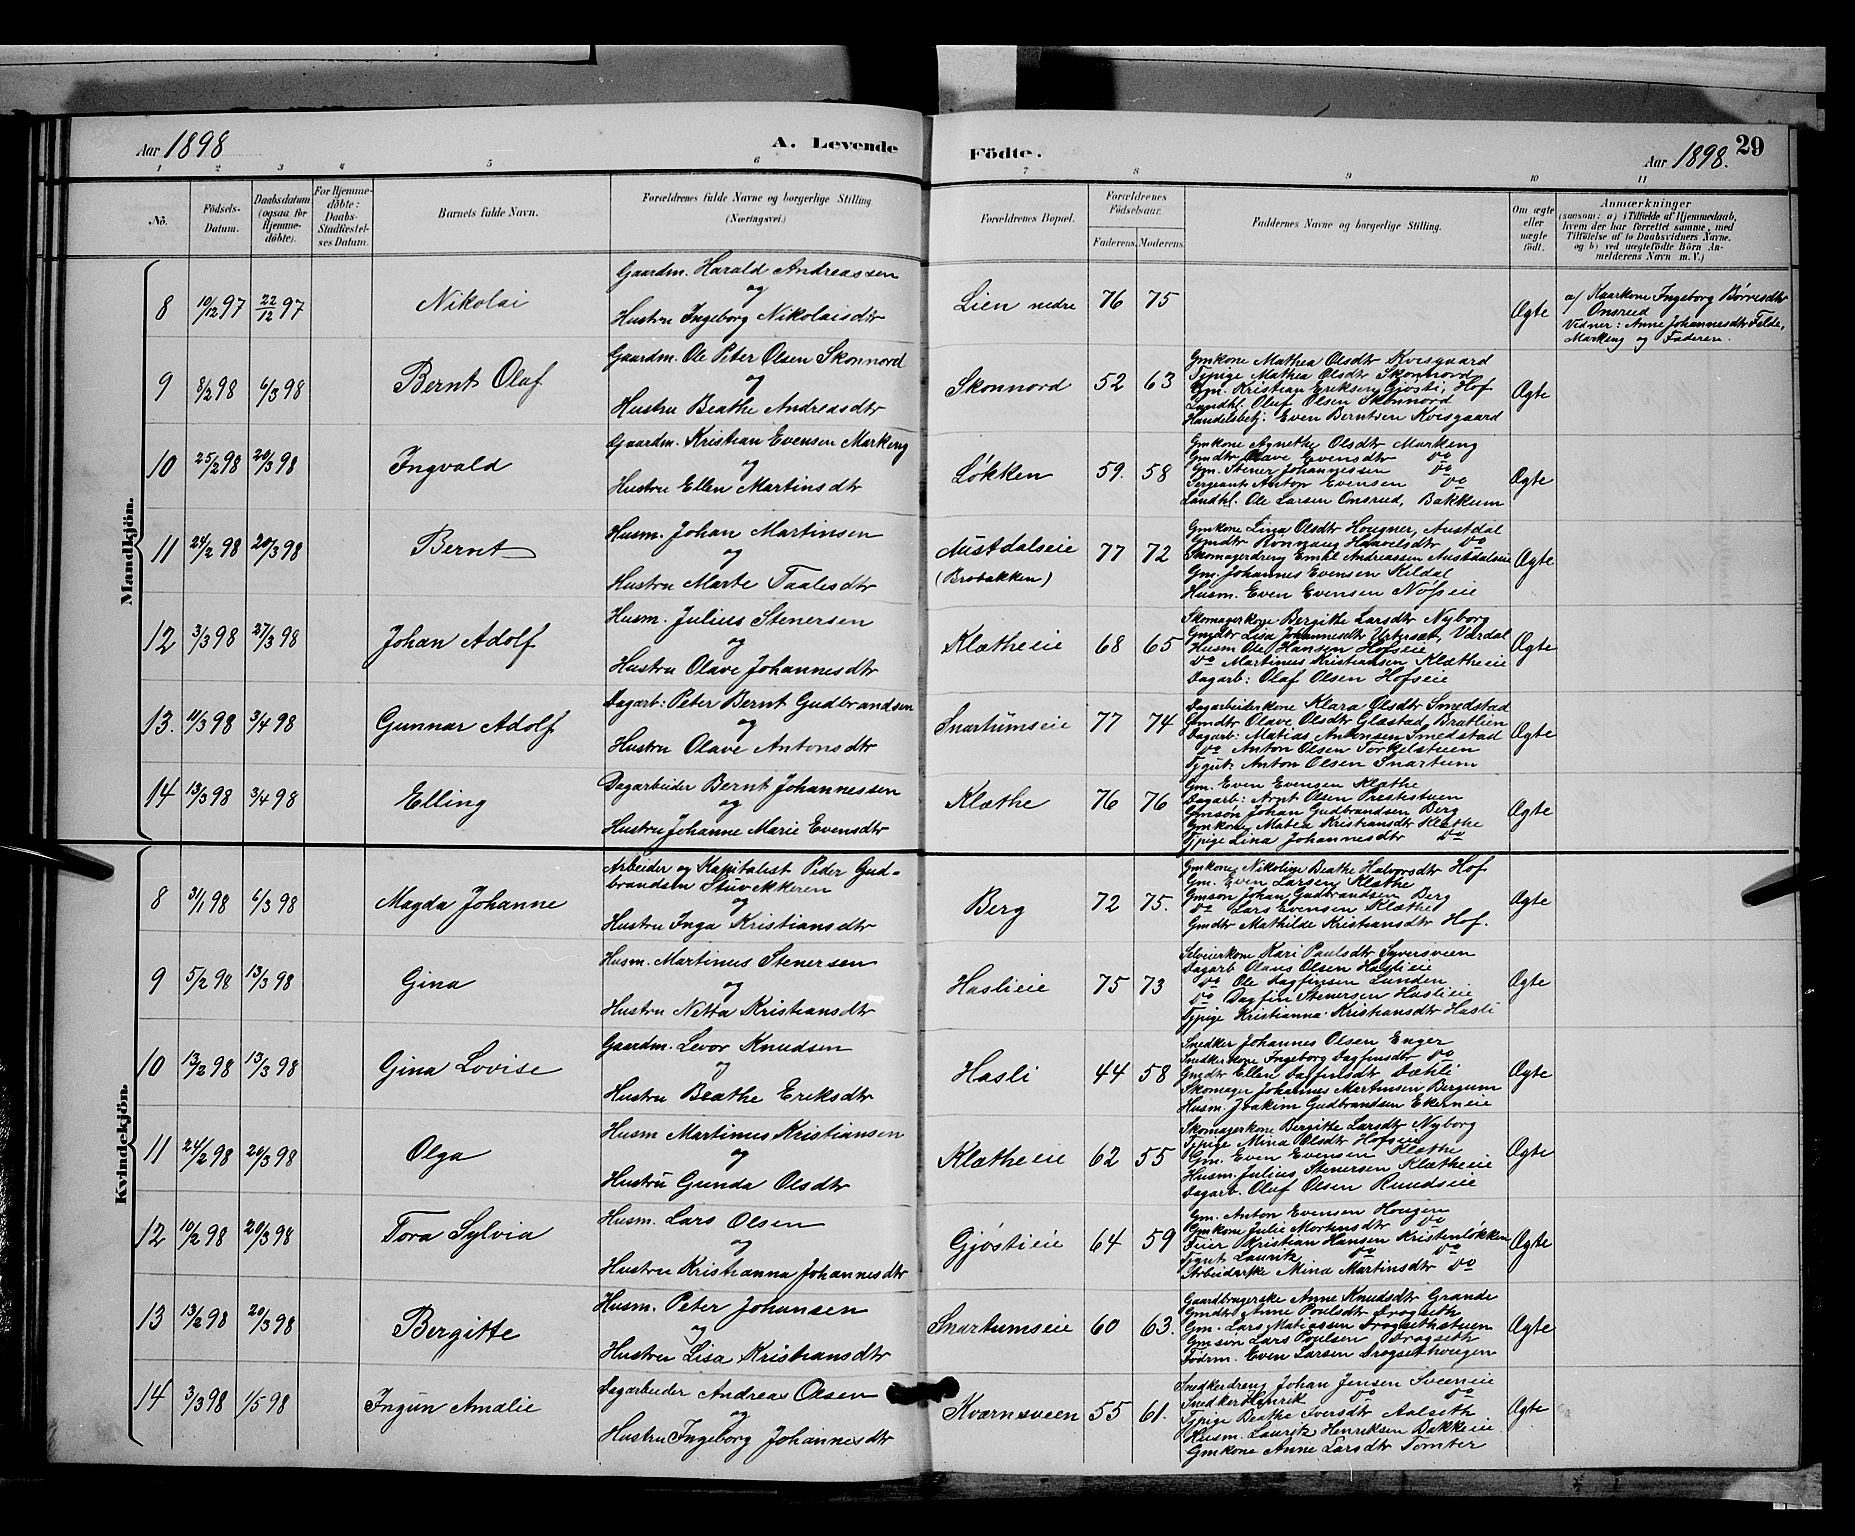 Aar 1898
A. Levende
Födte.
Aar 1898.
29
1 2 3 4 5 6 7 8 9 10 11
No.
Födsels-
Datum.
Daabsdatum
(ogsaa for
Hjemme-
döbte).
For Hjemme-
döbte:
Daabs-
Stadfæstel-
ses Datum.
Barnets fulde Navn.
Forældrenes fulde Navne og borgerlige Stilling
(Næringsvei.)
Forældrenes Bopæl.
Forældrenes
Födselsaar.
Faderens. Moderens.
Faddernes Navne og borgerlige Stilling.
Om ægte
eller
uægte
födt.
Anmærkninger
(saasom: a) i Tilfælde af Hjemmedaab,
hvem der har forrettet samme, med
Tilföielse af to Daabsvidners Navne,
og b) ved uægtefödte Börn An-
melderens Navn m. V.)
Mandkjön.
8 10/12 97 22/12 97 Nikolai
Gaardm. Harald Andreassen
og
Hustru Ingeborg Nikolaisdtr
Lien nedre 76 75
Ægte
a/ Kaarkone Ingeborg Börresdtr
Onsrud
Vidner: Anne Johannesdtr Felde,
Markeng og Faderen.
9 8/2 98 6/3 98 Bernt Olaf
Gaardm. Ole Peter Olsen Skonnord
og
Hustru Beathe Andreasdtr
Skonnord 52 63
Gmkone Mathea Olsdtr Kvisgaard
Tjpige Mathea Olsdtr Skonnord
Gm. Kristian Eriksen Gjøsti, Hof
Landhl. Oluf Olsen Skonnord
Handelsbetj. Even Berntsen Kvisgaard
Ægte
10 25/2 98 20/3 98 Ingvald
Gaardm. Kristian Evensen Markeng
og
Hustru Ellen Martinsdtr
Løkken 59. 58
Gmkone Agnethe Olsdtr Markeng
Gmdtr Olave Evensdtr Do
Gm. Stener Johannessen Do
Sergeant Anton Evensen Do
Landhl. Ole Larsen Onsrud, Bakkum
Ægte
11 24/2 98 20/3 98 Bernt
Husm. Johan Martinsen
og
Hustru Marte Taalesdtr
Austdalseie
(Brobakken)
77 72
Gmkone Lina Olsdtr Hougner, Austdal
Gmdtr Rønnaug Haavelsdtr Do
Skomagerdreng Emil Andreassen Austdalseie
Gm. Johannes Evensen Kildal
Husm. Even Evensen Nøfseie
Ægte
12 3/3 98 27/3 98 Johan Adolf
Husm. Julius Stenersen
og
Hustru Olave Johannesdtr
Klætheeie 68 65
Skomagerkone Bergithe Larsdtr Nyborg
Gmdtr Lisa Johannesdtr Urtersæt, Vardal
Husm Ole Hansen Hofseie
Do Martinus Kristiansen Klætheeie
Dagarb: Olaf Olsen Hofseie
Ægte
13. 11/3 98 3/4 98 Gunnar Adolf
Dagarb: Peter Bernt Gudbrandsen
og
Hustru Olave Antonsdtr
Snartumseie 77 74
Dagarbeiderkone Klara Olsdtr Smedstad
Gmdtr Olave Olsdtr Glæstad, Bratlien
Dagarb: Matias Antonsen Smedstad
Do Anton Olsen Torkelstuen
Tjgut Anton Olsen Snartum
Ægte
14 13/3 98 3/4 98 Elling
Dagarbeider Bernt Johannessen
og
Hustru Johanne Marie Evensdtr
Klæthe 76 76
Gm. Even Evensen Klæthe
Dagarb: Arnt Olsen Prestestuen
Gmsøn Johan Gudbrandsen Berg
Gmkone Matea Kristiansdtr Klæthe
Tjpige Lina Johannesdtr Do
Ægte
Kvindekjön.
8 31/1 98 6/3 98 Magda Johanne
Arbeider og Kapitalist Peder Gud-
brandsen Stuvekkeren
og
Hustru Inga Kristiansdtr
Berg 72 75.
Gmkone Nikoline Beathe Halvorsdtr Hof
Gm. Even Larsen Klæthe
Gmsøn Johan Gudbrandsen Berg
Do Lars Evensen Klæthe
Gmdtr Mathilde Kristiansdtr Hof.
Ægte
9 5/2 98 13/3 98 Gina
Husm. Martinus Stenersen
og
Hustru Netta Kristiansdtr
Haslieie 75 73
Selveierkone Kari Paulsdtr Syversveen
Dagarb Olaus Olsen Haslieie
Do Ole Dagfinsen Lunden
Do Dagfin Stenersen Haslieie
Tjpige Kristianna Kristiansdtr Hasli
Ægte
10 13/2 98 13/3 98 Gina Lovise
Gaardm. Levor Knudsen
og
Hustru Beathe Eriksdtr
Hasli 44 58
Snedker Johannes Olsen Enger
Snedkerkone Ingeborg Dagfinsdtr Do
Gmdtr Ellen Dagfinsdtr Dæhli
Skomager Johannes Martinsen Bergum
Husm. Joakim Gudbrandsen Ekerneie
Ægte
11 24/2 98 20/3 98 Olga
Husm Martinus Kristiansen
og
Hustru Gunda Olsdtr
Klætheeie 62 55
Skomagerkone Bergithe Larsdtr Nyborg
Tjpige Mina Olsdtr Hofseie
Gm. Even Evensen Klæthe
Husm. Julius Stenersen Klætheeie
Dagarb. Oluf Olsen Rundseie
Ægte
12 10/2 98 20/3 98 Tora Sylvia
Husm. Lars Olsen
og
Hustru Kristianna Johannesdtr
Gjøstieie 64 59
Gm. Anton Evensen Hougen
Gmkone Julie Mortensdtr Do
Feier Kristian Hansen Kristenløkken
Tjgut Lauritz Do Do
Arbeiderske Mina Martinsdtr Do
Ægte
13 13/2 98 20/3 98 Bergitte
Husm. Peter Johansen
og
Hustru Lisa Kristiansdtr
Snartumseie 60 63.
Gaardbrugerske Anne Knudsdtr Grande
Gmdtr Anne Poulsdtr Drogseth
Gm. Lars Matiassen Drogsethstuen
Gmsøn Lars Poulsen Drogseth
Födrm. Even Larsen Drogsethougen
Ægte
14 3/3 98 1/5 98 Ingun Amalie
Dagarbeider Andreas Olsen
og
Hustru Ingeborg Johannesdtr
Kværnsveen 55 61.
Snedkerdreng Johan Jensen Sveenie
Snedker Henrik Do Do
Tjpige Beathe Iversdtr Aalseth
Husm. Lauritz Henriksen Bakkeie
Gmkone Anne Larsdtr Tomter
Ægte